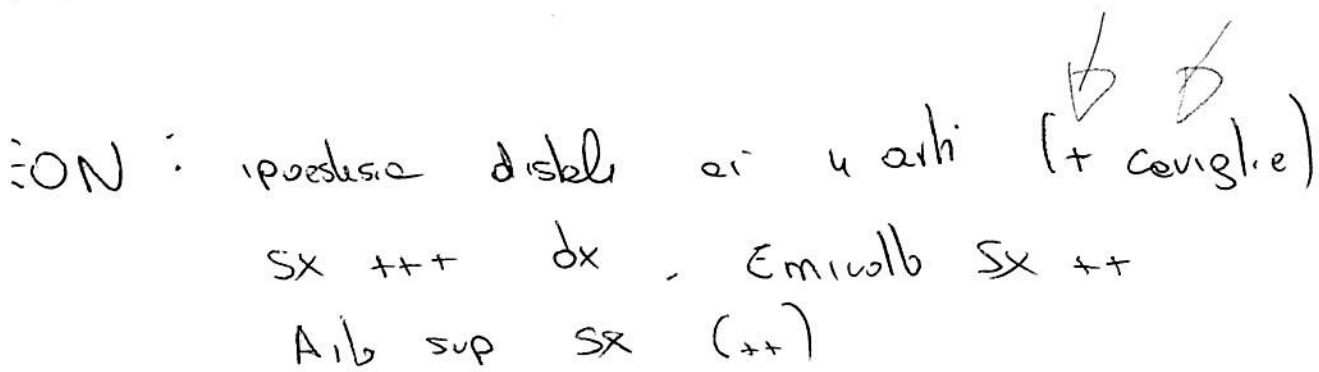 EON : ipoestesia distale ai 4 arti (+ caviglie)
SX +++ dx . Emivolto SX ++
Arto sup SX (++)